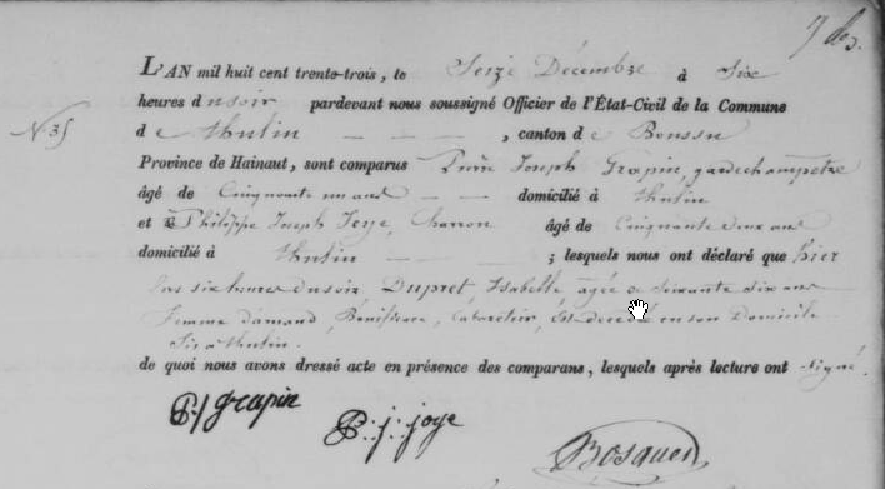 L'AN mil huit cent trente-trois, le Seize Décembre à Six
heures du soir pardevant nous soussigné Officier de l'État-Civil de la Commune
N. 35
de thulin, canton de Boussu
Province de Hainaut, sont comparus Pierre Joseph Grapin, garde champetre
âgé de Cinquante un ans domicilié à thulin
et Philippe Joseph Joye, Charron âgé de Cinquante deux ans
domicilié à thulin ; lesquels nous ont déclaré que hier
les six heures du soir, Dupret, Isabelle, agée de Soixante six ans
Femme d'amand, Cabaretier, Est décédé en son Domicile
Sis a thulin.
de quoi nous avons dressé acte en présence des comparans, lesquels après lecture ont signé.
P. J grapin
P. j. joye
Bosquet